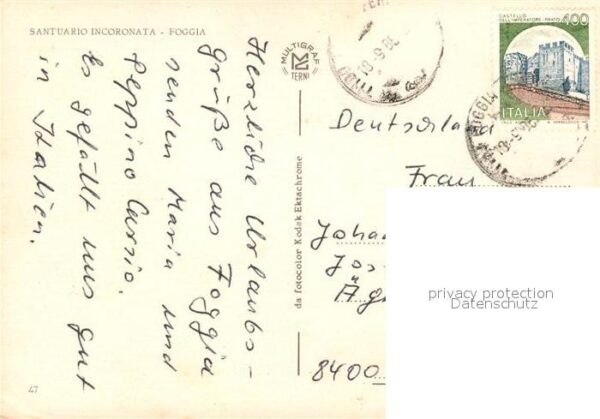 SANTUARIO INCORONATA - FOGGIA
Herzliche Urlaubs-
grüße aus Foggia
senden Maria und
Peppino Cursio.
Es gefällt uns gut
in Italien.
47
MULTIGRAF
TERNI
da fotocolor Kodak Ektachrome
CASTELLO
DELL'IMPERATORE - PRATO
400
ITALIA
FOGGIA
Deutschland
Frau
Joha
Jos
Äg
8400
privacy protection
Datenschutz